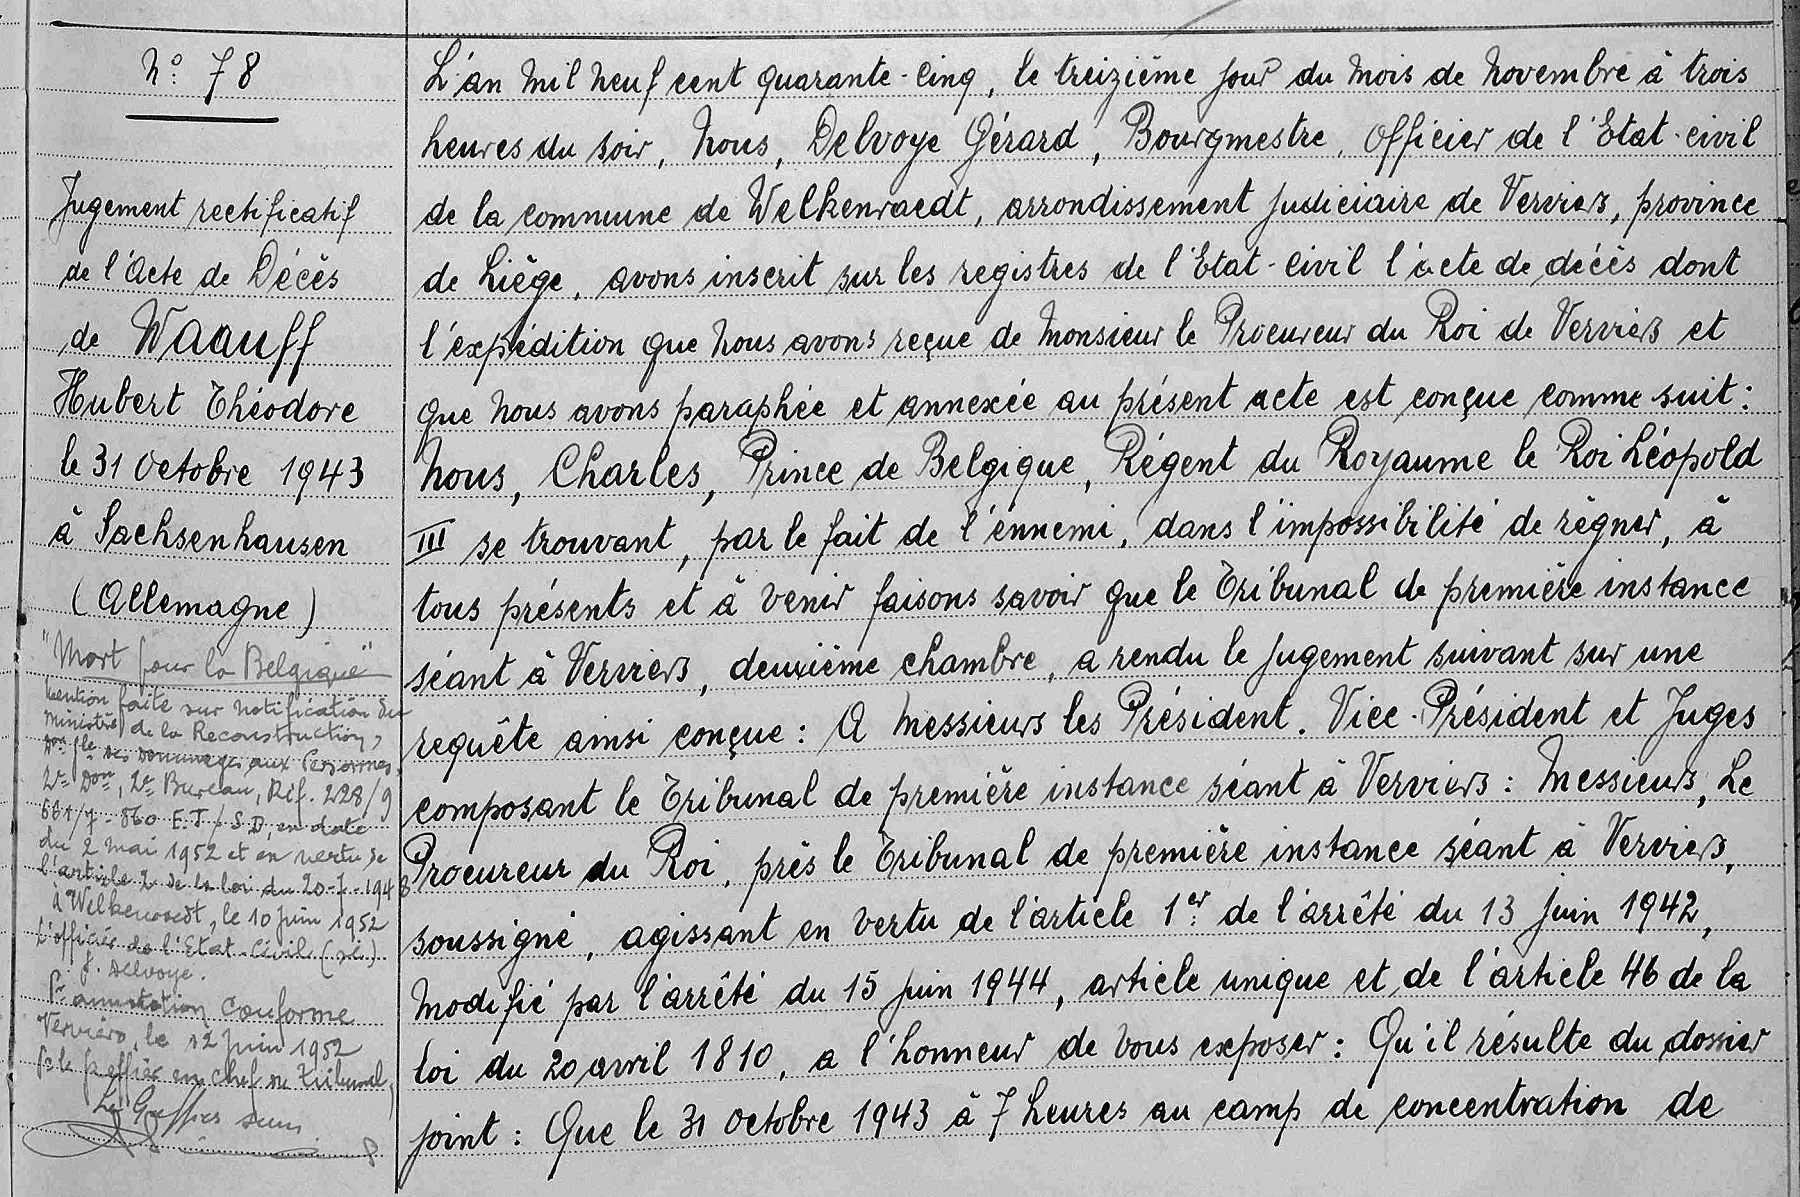 N° 78
Jugement rectificatif
de l'Acte de Décès
de Waauff
Hubert Théodore
le 31 Octobre 1943
à Sachsenhausen
(Allemagne)
"Mort pour la Belgique"
Mention faite sur notification du
Ministre de la Reconstruction,
des Dommages aux Personnes,
2e Don, 2e Bureau, Réf. 228/9
661/7-860 E.T/S.D, en date
du 2 mai 1952 et en vertu de
l'article 2 de la loi du 20-7-1948
à Welkenraedt, le 10 juin 1952
L'officier de l'Etat-Civil (sé)
G. Delvoye.
Pr annotation conforme
Verviers, le 12 juin 1952
Pr le Greffier en chef du tribunal,
Le Greffier
L'an mil neuf cent quarante-cinq, le treizième jour du mois de Novembre à trois
heures du soir, Nous, Delvoye Gérard, Bourgmestre, Officier de l'Etat-civil
de la commune de Welkenraedt, arrondissement judiciaire de Verviers, province
de Liège, avons inscrit sur les registres de l'Etat-Civil l'acte de décès dont
l'expédition que Nous avons reçue de Monsieur le Procureur du Roi de Verviers et
que Nous avons paraphée et annexée au présent acte est conçue comme suit :
Nous, Charles, Prince de Belgique, Régent du Royaume le Roi Léopold
III se trouvant, par le fait de l'ennemi, dans l'impossibilité de régner, à
tous présents et à venir faisons savoir que le Tribunal de première instance
séant à Verviers, deuxième chambre, a rendu le jugement suivant sur une
requête ainsi conçue : A Messieurs les Président. Vice-Président et Juges
composant le Tribunal de première instance séant à Verviers : Messieurs, Le
Procureur du Roi, près le Tribunal de première instance séant à Verviers,
soussigné, agissant en vertu de l'article 1er de l'arrêté du 13 Juin 1942,
Modifié par l'arrêté du 15 Juin 1944, article unique et de l'article 46 de la
loi du 20 avril 1810, a l'honneur de vous exposer : Qu'il résulte du dossier
joint : Que le 31 octobre 1943 à 7 heures au camp de concentration de